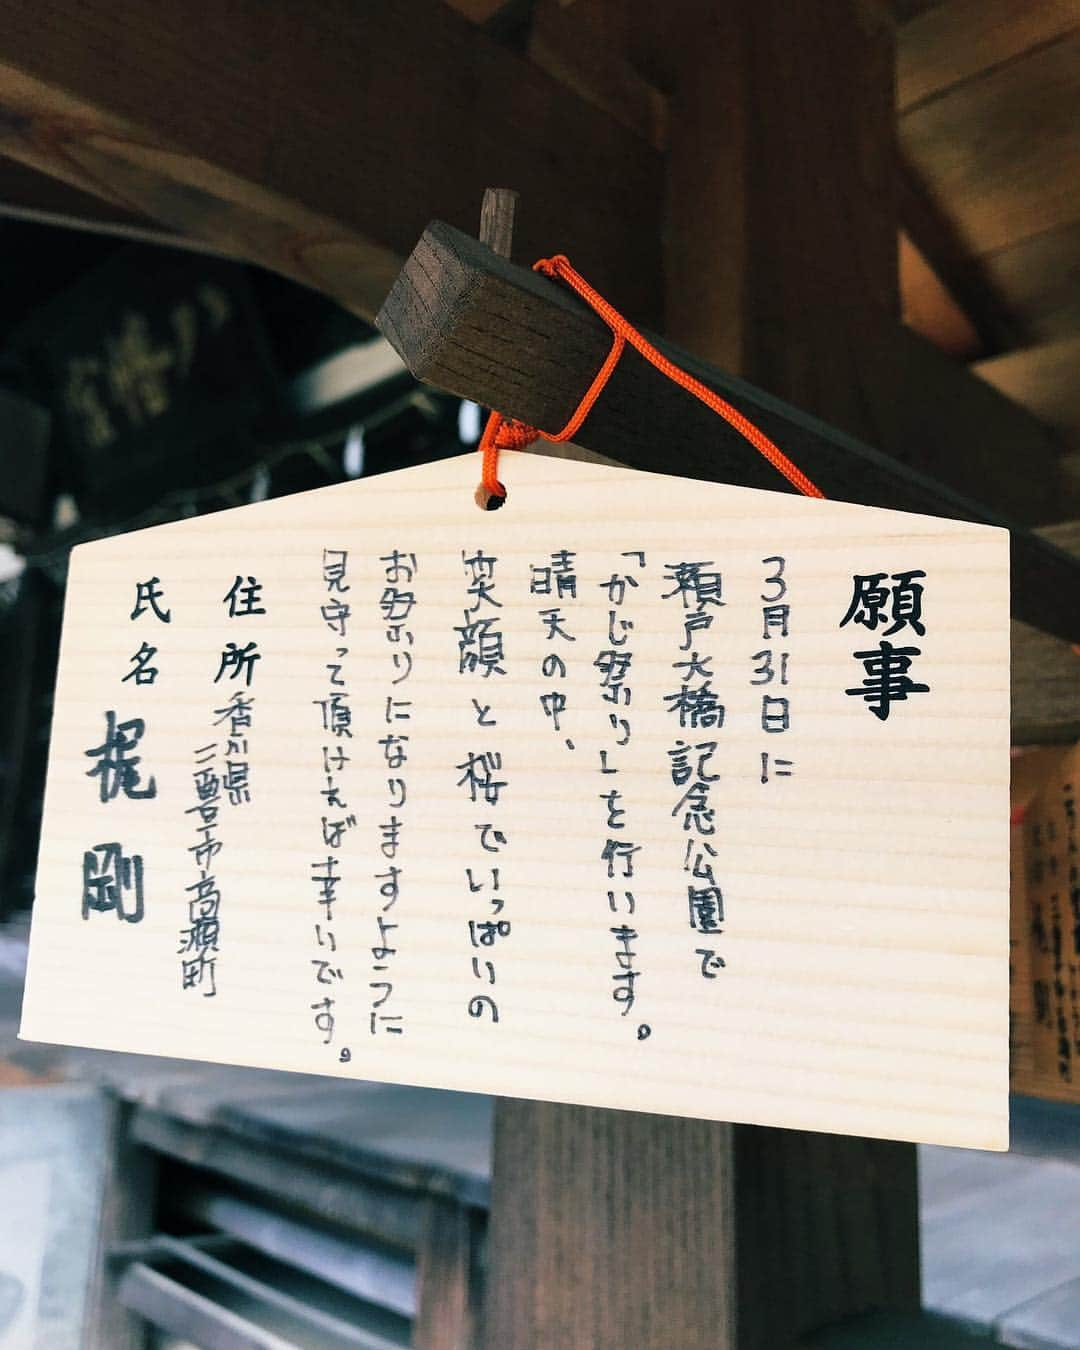 願事
3月31日に
瀬戸大橋記念公園で
「かじ祭り」を行います。
晴天の中、
笑顔と桜でいっぱいの
お祭りになりますように
見守って頂けえば幸いです。
住所 香川県
三豊市高瀬町
氏名 梶 剛